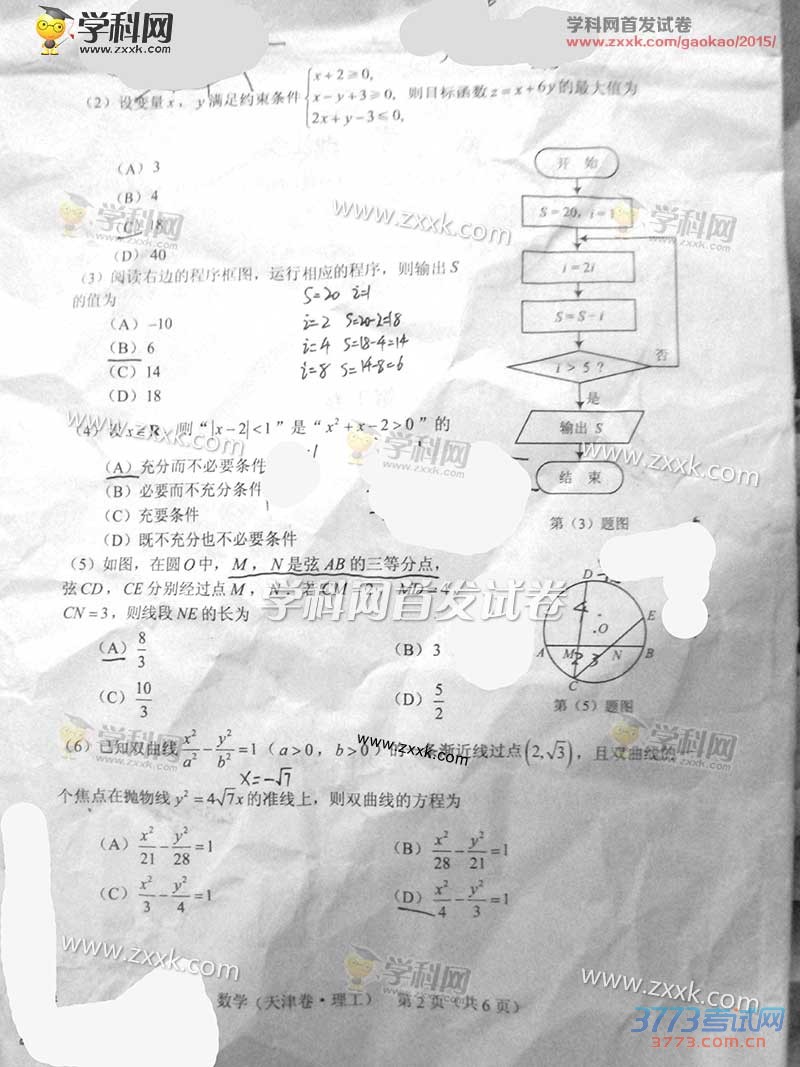 学科网
www.zxxk.com
学科网首发试卷
www.zxxk.com/gaokao/2015/
(2) 设变量 x，y 满足约束条件 { x+2≥0, x−y+3≥0, 2x+y−3≤0, 则目标函数 z=x+6y 的最大值为
(A) 3
(B) 4
(C) 18
(D) 40
(3) 阅读右边的程序框图，运行相应的程序，则输出 S
的值为
(A) −10
(B) 6
(C) 14
(D) 18
S=20 i=1
i=2 S=20-2=18
i=4 S=18-4=14
i=8 S=14-8=6
开 始
S=20，i=1
i=2i
S=S−i
i>5？
否
是
输出 S
结 束
第（3）题图
(4) 设 x∈R，则“|x−2|<1”是“x²+x−2>0”的
(A) 充分而不必要条件
(B) 必要而不充分条件
(C) 充要条件
(D) 既不充分也不必要条件
(5) 如图，在圆 O 中，M，N 是弦 AB 的三等分点，
弦 CD，CE 分别经过点 M，N．若 CM=2，MD=4，
CN=3，则线段 NE 的长为
(A) 8/3
(B) 3
(C) 10/3
(D) 5/2
D
4
E
O
A
M
2
3
N
B
C
第（5）题图
(6) 已知双曲线 x²/a² − y²/b² =1（a>0，b>0）的一条渐近线过点(2,√3)，且双曲线的一
x=-√7
个焦点在抛物线 y²=4√7x 的准线上，则双曲线的方程为
(A) x²/21 − y²/28 =1
(B) x²/28 − y²/21 =1
(C) x²/3 − y²/4 =1
(D) x²/4 − y²/3 =1
数学（天津卷·理工） 第 2 页（共 6 页）
学科网
www.zxxk.com
www.zxxk.com
学科网首发试卷
3773考试网
3773.com.cn